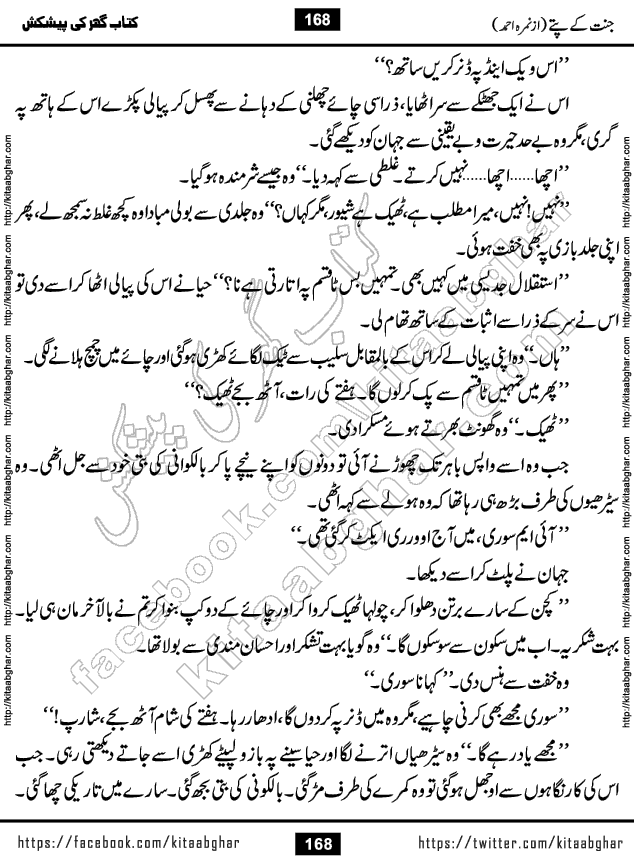 جنت کے پتے (از نمرہ احمد)
168
کتاب گھر کی پیشکش
’’اس ویک اینڈ پہ ڈنر کریں ساتھ؟‘‘
اس نے ایک جھٹکے سے سر اٹھایا، ذرا سی چائے چھلنی کے دہانے سے پھسل کر پیالی پکڑے اس کے ہاتھ پہ
گری، مگر وہ بے حد حیرت و بے یقینی سے جہان کو دیکھے گئی۔
’’اچھا......اچھا......نہیں کرتے۔ غلطی سے کہہ دیا۔‘‘ وہ جیسے شرمندہ ہوگیا۔
’’نہیں! نہیں، میرا مطلب ہے، ٹھیک ہے شیور، مگر کہاں؟‘‘ وہ جلدی سے بولی مبادا وہ کچھ غلط نہ سمجھ لے، پھر
اپنی جلد بازی پہ بھی خفت ہوئی۔
’’استقلال جدیسی میں کہیں بھی۔ تمہیں بس ٹاقسم پہ اتارتی ہے نا؟‘‘ حیا نے اس کی پیالی اٹھا کر اسے دی تو
اس نے سر کے ذرا سے اثبات کے ساتھ تھام لی۔
’’ہاں۔‘‘ وہ اپنی پیالی لے کر اس کے بالمقابل سلیب سے ٹیک لگائے کھڑی ہوگئی اور چائے میں چمچ ہلانے لگی۔
’’پھر میں تمہیں ٹاقسم سے پک کر لوں گا۔ ہفتے کی رات، آٹھ بجے ٹھیک؟‘‘
’’ٹھیک۔‘‘ وہ گھونٹ بھرتے ہوئے مسکرا دی۔
جب وہ اسے واپس باہر تک چھوڑنے آئی تو دونوں کو اپنے نیچے پا کر بالکونی کی بتی خود سے جل اٹھی۔ وہ
سیڑھیوں کی طرف بڑھ ہی رہا تھا کہ وہ ہولے سے کہہ اٹھی۔
’’آئی ایم سوری، میں آج اوور ری ایکٹ کر گئی تھی۔‘‘
جہان نے پلٹ کر اسے دیکھا۔
’’کچن کے سارے برتن دھلوا کر، چولہا ٹھیک کروا کر اور چائے کے دو کپ بنوا کر تم نے بالآخر مان ہی لیا۔
بہت شکریہ۔ اب میں سکون سے سو سکوں گا۔‘‘ وہ گویا بہت تشکر اور احسان مندی سے بولا تھا۔
وہ خفت سے ہنس دی۔ ’’کہا نا سوری۔‘‘
’’سوری مجھے بھی کرنی چاہیے، مگر وہ میں ڈنر پہ کر دوں گا، ادھار رہا۔ ہفتے کی شام آٹھ بجے، شارپ!‘‘
’’مجھے یاد رہے گا۔‘‘ وہ سیڑھیاں اترنے لگا اور حیا سینے پہ بازو لپیٹے کھڑی اسے جاتے دیکھتی رہی۔ جب
اس کی کار نگاہوں سے اوجھل ہوگئی تو وہ کمرے کی طرف مڑ گئی۔ بالکونی کی بتی بجھ گئی۔ سارے میں تاریکی چھا گئی۔
کتاب گھر کی پیشکش
facebook.com/kitaabghar
kitaabghar.com
http://kitaabghar.com http://kitaabghar.com http://kitaabghar.com http://kitaabghar.com http://kitaabghar.com http://kitaabghar.com
http://kitaabghar.com http://kitaabghar.com http://kitaabghar.com http://kitaabghar.com http://kitaabghar.com http://kitaabghar.com
https://facebook.com/kitaabghar
168
https://twitter.com/kitaabghar